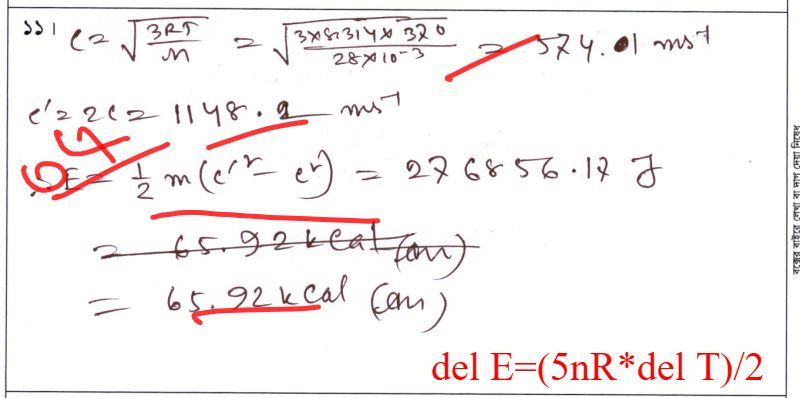 ১১। C = √(3RT/M) = √(3×8.314×320/28×10⁻³) = 574.01 ms⁻¹
c' = 2c = 1148.2 ms⁻¹
04
ΔE = 1/2 m(c'² - c²) = 276856.17 J
= 65.92 kCal (Ans)
= 65.92 kCal (Ans)
del E=(5nR*del T)/2
বক্সের বাইরে লেখা বা দাগ দেয়া নিষেধ